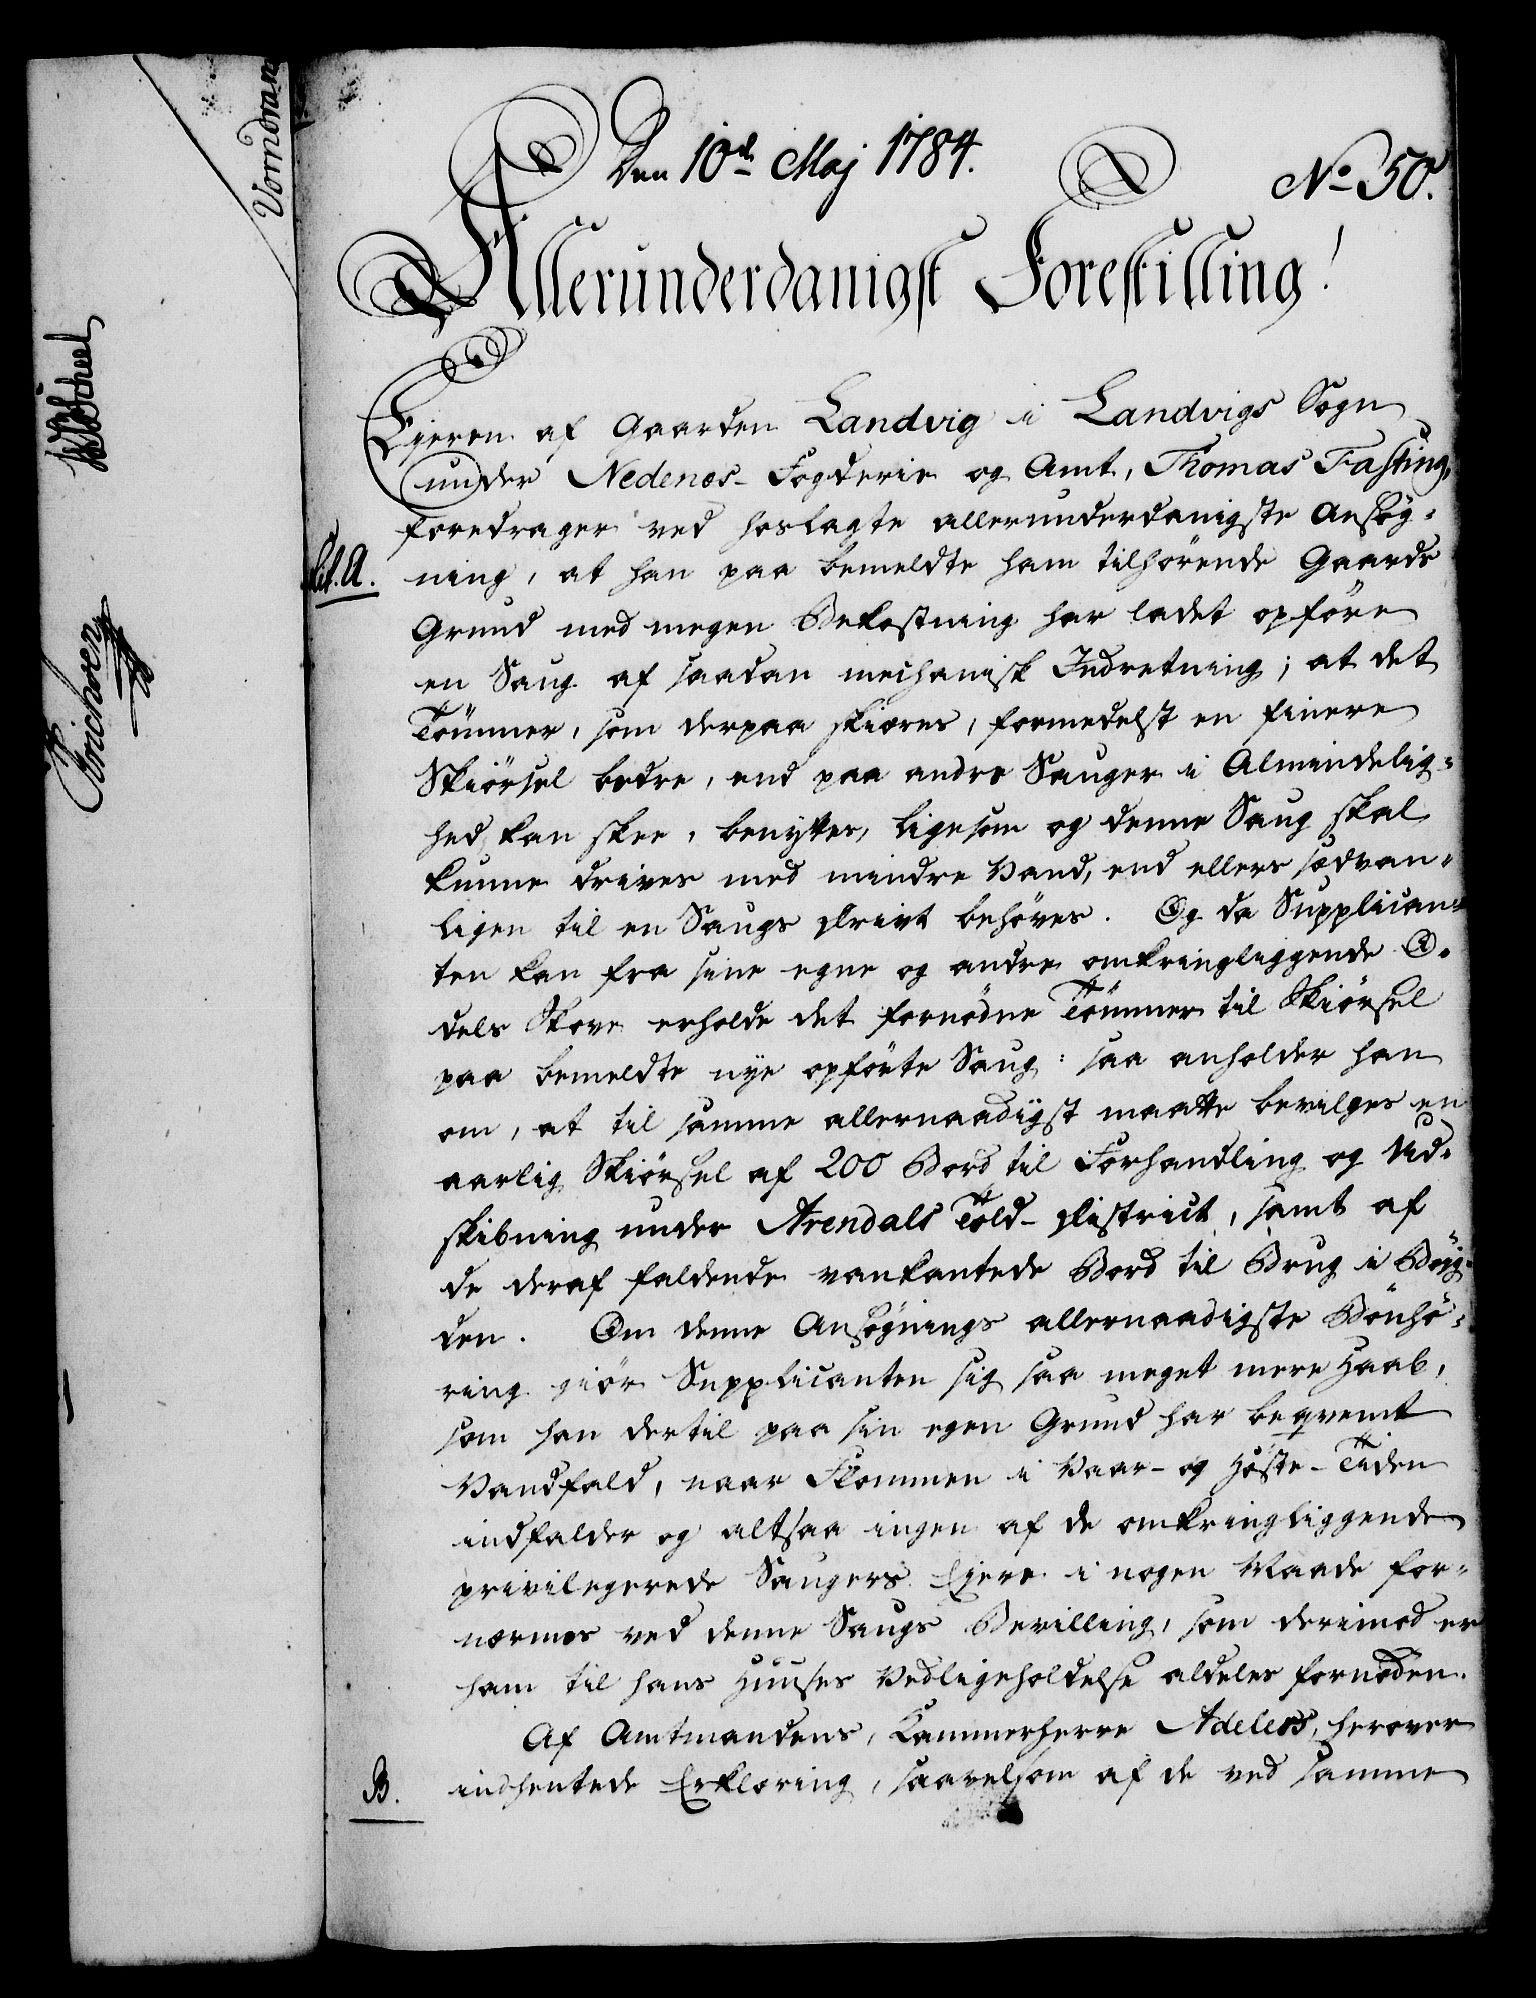 Den 10de Maj 1784.
No 50.
Allerunderdanigst Forestilling!
Ejeren af Gaarden Landvig i Landvigs Sogn
under Nedenes-Fogderie og Amt, Thomas Fasting,
foredrager ved hoslagte allerunderdanigste Ansøg-
Lit. A.
ning, at han paa bemeldte ham tilhörende Gaards
Grund med megen Bekostning har ladet opföre
en Saug af saadan mechanisk Indretning; at det
Tömmer, som derpaa skiæres, formedelst en finere
Skiörsel bedre, end paa andre Sauger i Almindelig-
hed kan skee, benyttes, ligesom og denne Saug skal
kunne drives med mindre Vand, end ellers sædvan-
ligen til en Saugs Drivt behöves. Og da Supplican-
ten kan fra sine egne og andre omkringliggende O-
dels Skove erholde det fornödne Tömmer til Skiörsel
paa bemeldte nye opförte Saug: saa anholder han
om, at til samme allernaadigst maatte bevilges en
aarlig Skiörsel af 200 Bord til Forhandling og Ud-
skibning under Arendals Told-District, samt af
de deraf faldende vankantede Bord til Brug i Böyg-
den. Om denne Ansøgnings allernaadigste Bönhö-
ring giör Supplicanten sig saa meget mere Haab,
som han dertil paa sin egen Grund har beqvemt
Vandfald, naar Flommen i Vaar- og Höste-Tiden
indfalder og altsaa ingen af de omkringliggende
privilegerede Saugers Ejere i nogen Maade for-
nærmes ved denne Saugs Bevilling, som derimod er
ham til hans Huuses Vedligeholdelse aldeles fornöden.
Af Amtmandens, Kammerherre Adelers, herover
B.
indhentede Erklæring, saavelsom af de ved samme
Erichsen